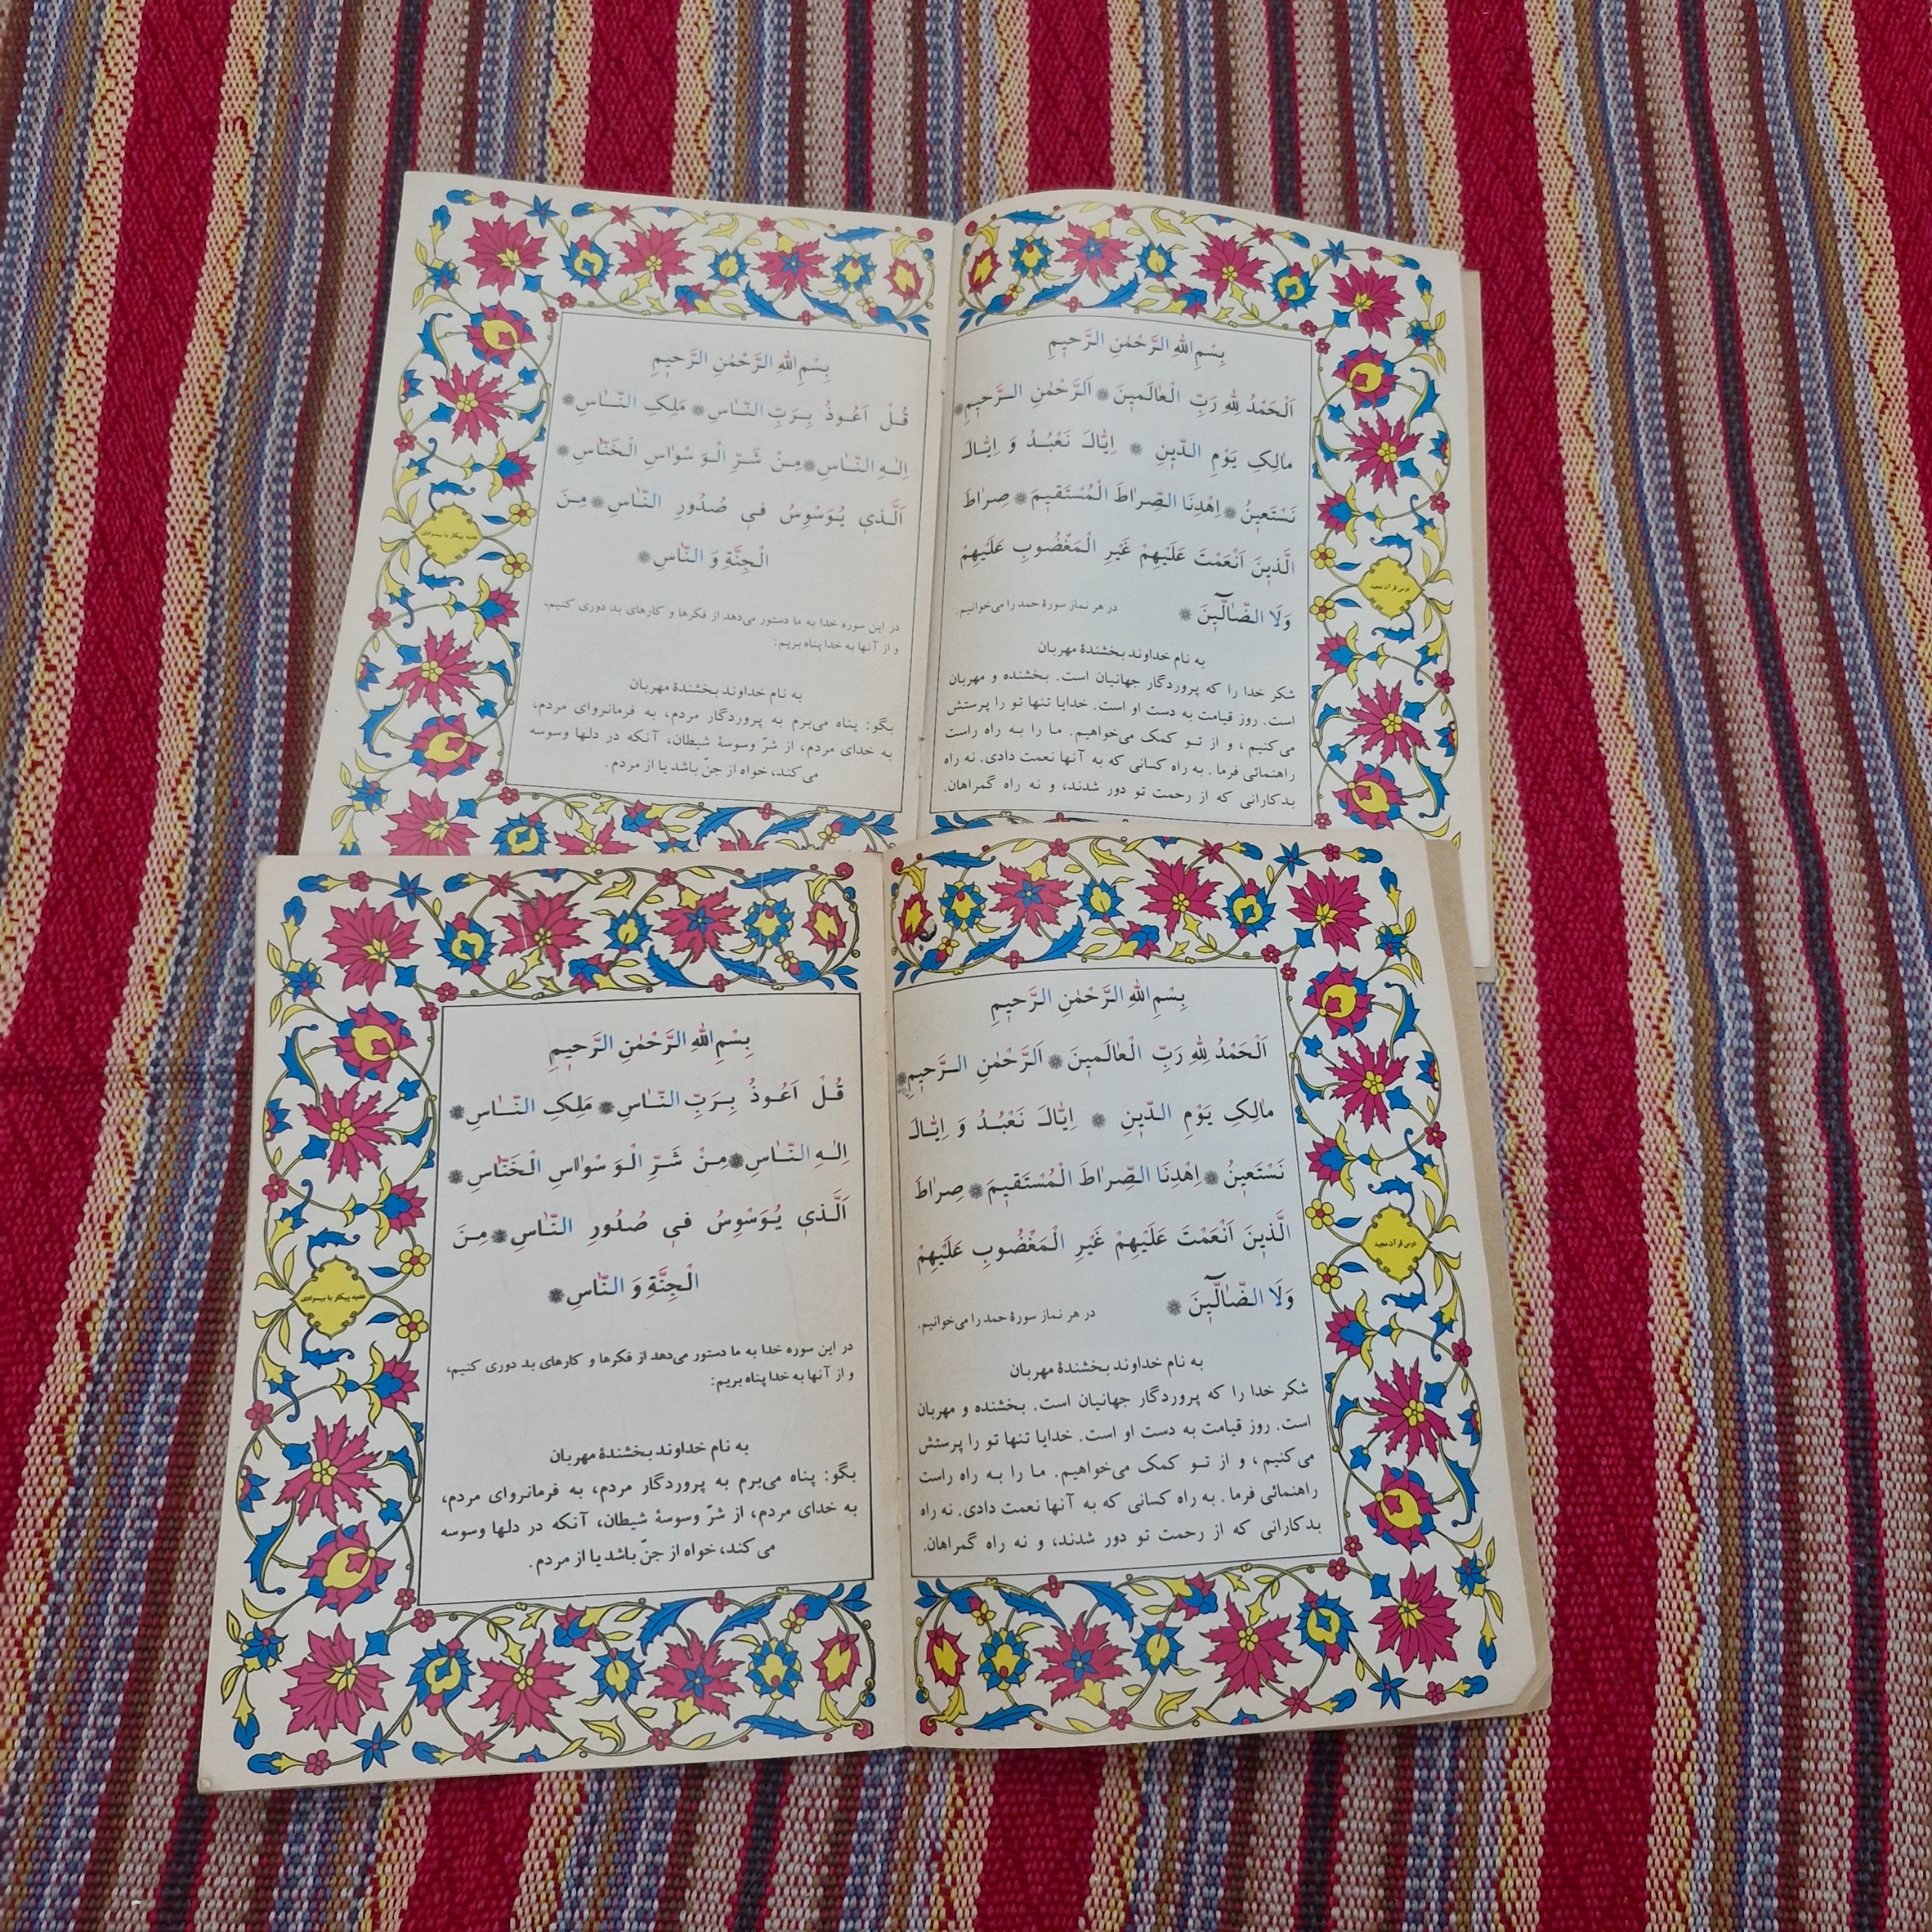 بِسْمِ اللهِ الرَّحْمٰنِ الرَّحیمِ
اَلْحَمْدُ لِلّٰهِ رَبِّ الْعٰالَمینَ * اَلرَّحْمٰنِ الرَّحیمِ *
مٰالِکِ یَوْمِ الدّینِ * اِیّٰاکَ نَعْبُدُ وَ اِیّٰاکَ
نَسْتَعینُ * اِهْدِنَا الصِّرٰاطَ الْمُسْتَقیمَ * صِرٰاطَ
الَّذینَ اَنْعَمْتَ عَلَیْهِمْ غَیْرِ الْمَغْضُوبِ عَلَیْهِمْ
وَلَا الضّٰالّینَ * در هر نماز سورهٔ حمد را می‌خوانیم.
به نام خداوند بخشندهٔ مهربان
شکر خدا را که پروردگار جهانیان است. بخشنده و مهربان
است. روز قیامت به دست او است. خدایا تنها تو را پرستش
می‌کنیم، و از تو کمک می‌خواهیم. ما را به راه راست
راهنمائی فرما. به راه کسانی که به آنها نعمت دادی. نه راه
بدکارانی که از رحمت تو دور شدند، و نه راه گمراهان.
درس قرآن مجید
بِسْمِ اللهِ الرَّحْمٰنِ الرَّحیمِ
قُلْ اَعُوذُ بِرَبِّ النّٰاسِ * مَلِکِ النّٰاسِ *
اِلٰهِ النّٰاسِ * مِنْ شَرِّ الْوَسْوٰاسِ الْخَنّٰاسِ *
اَلَّذی یُوَسْوِسُ فی صُدُورِ النّٰاسِ * مِنَ
الْجِنَّةِ وَ النّٰاسِ *
در این سوره خدا به ما دستور می‌دهد از فکرها و کارهای بد دوری کنیم،
و از آنها به خدا پناه بریم:
به نام خداوند بخشندهٔ مهربان
بگو: پناه می‌برم به پروردگار مردم، به فرمانروای مردم،
به خدای مردم، از شرّ وسوسهٔ شیطان، آنکه در دلها وسوسه
می‌کند، خواه از جنّ باشد یا از مردم.
هدیه پیکار با بیسوادی
بِسْمِ اللهِ الرَّحْمٰنِ الرَّحیمِ
اَلْحَمْدُ لِلّٰهِ رَبِّ الْعٰالَمینَ * اَلرَّحْمٰنِ الرَّحیمِ *
مٰالِکِ یَوْمِ الدّینِ * اِیّٰاکَ نَعْبُدُ وَ اِیّٰاکَ
نَسْتَعینُ * اِهْدِنَا الصِّرٰاطَ الْمُسْتَقیمَ * صِرٰاطَ
الَّذینَ اَنْعَمْتَ عَلَیْهِمْ غَیْرِ الْمَغْضُوبِ عَلَیْهِمْ
وَلَا الضّٰالّینَ * در هر نماز سورهٔ حمد را می‌خوانیم.
به نام خداوند بخشندهٔ مهربان
شکر خدا را که پروردگار جهانیان است. بخشنده و مهربان
است. روز قیامت به دست او است. خدایا تنها تو را پرستش
می‌کنیم، و از تو کمک می‌خواهیم. ما را به راه راست
راهنمائی فرما. به راه کسانی که به آنها نعمت دادی. نه راه
بدکارانی که از رحمت تو دور شدند، و نه راه گمراهان.
درس قرآن مجید
بِسْمِ اللهِ الرَّحْمٰنِ الرَّحیمِ
قُلْ اَعُوذُ بِرَبِّ النّٰاسِ * مَلِکِ النّٰاسِ *
اِلٰهِ النّٰاسِ * مِنْ شَرِّ الْوَسْوٰاسِ الْخَنّٰاسِ *
اَلَّذی یُوَسْوِسُ فی صُدُورِ النّٰاسِ * مِنَ
الْجِنَّةِ وَ النّٰاسِ *
در این سوره خدا به ما دستور می‌دهد از فکرها و کارهای بد دوری کنیم،
و از آنها به خدا پناه بریم:
به نام خداوند بخشندهٔ مهربان
بگو: پناه می‌برم به پروردگار مردم، به فرمانروای مردم،
به خدای مردم، از شرّ وسوسهٔ شیطان، آنکه در دلها وسوسه
می‌کند، خواه از جنّ باشد یا از مردم.
هدیه پیکار با بیسوادی